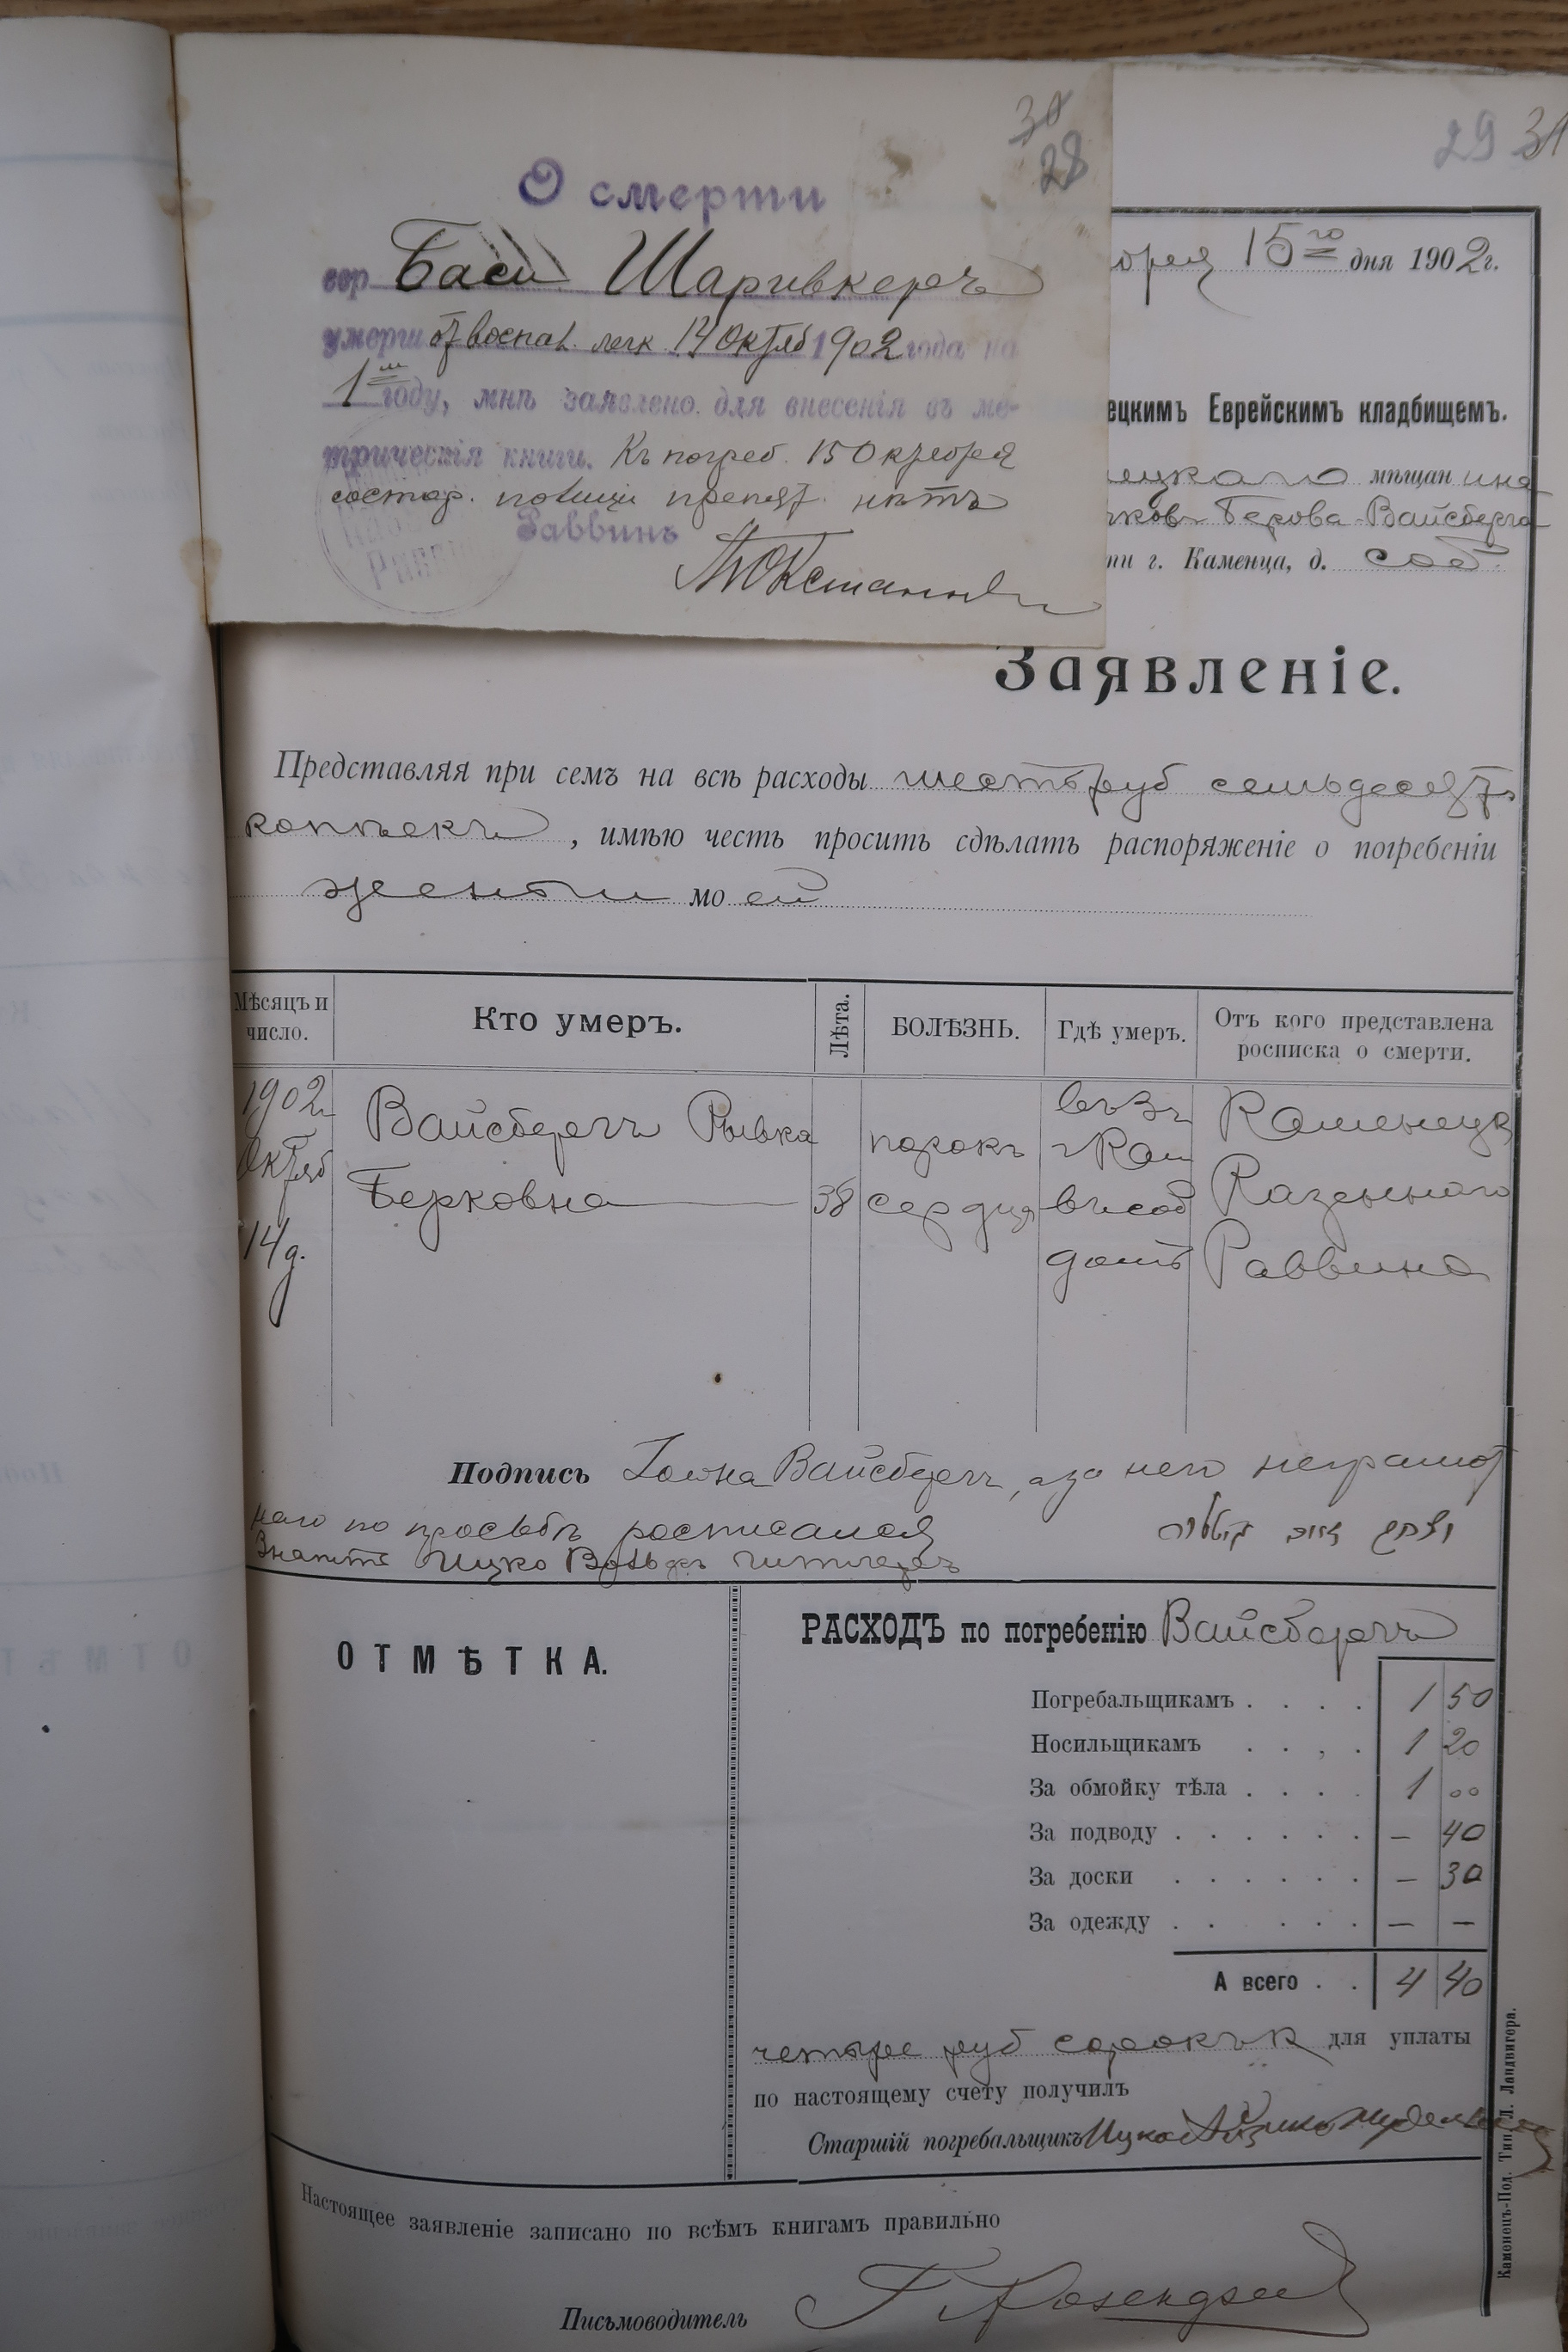 30
28
О смерти
евр Баси Шаривкеръ
умерш. отъ воспал. легк 14 Октяб 1902 года на
1м году, мнѣ заявлено для внесенія въ ме-
трическія книги. Къ погреб. 15 Октября
состор. полиціи препят. нѣтъ
Раввинъ
29 31
бря 15го дня 1902 г.
ецкимъ Еврейскимъ кладбищемъ.
ецкаго мѣщанина
Берова Вайсберга
ти г. Каменца, д. соб.
Заявленіе.
Представляя при семъ на всѣ расходы шесть руб семьдесятъ
копѣекъ, имѣю честь просить сдѣлать распоряженіе о погребеніи
жены моей
Мѣсяцъ и число. Кто умеръ. Лѣта. БОЛѢЗНЬ. Гдѣ умеръ. Отъ кого представлена росписка о смерти.
1902г Октяб 14 д. Вайсбергъ Рывка Берковна 38 порокъ сердця въ соб домѣ Каменецк Казеннаго Раввина
Подпись Вайсбергъ, а за него неграмот
наго по просьбѣ росписался
Ицко Вольф
ОТМѢТКА.
РАСХОДЪ по погребенію Вайсбергъ
Погребальщикамъ . . . . 1 50
Носильщикамъ . . . . 1 20
За обмойку тѣла . . . . 1 00
За подводу . . . . . . — 40
За доски . . . . . . — 30
За одежду . . . . . . — —
А всего . . 4 40
четыре руб сорокъ к для уплаты
по настоящему счету получилъ
Старшій погребальщикъ Ицко
Настоящее заявленіе записано по всѣмъ книгамъ правильно
Письмоводитель
Каменецъ-Под. Тип. Л. Ландвигера.